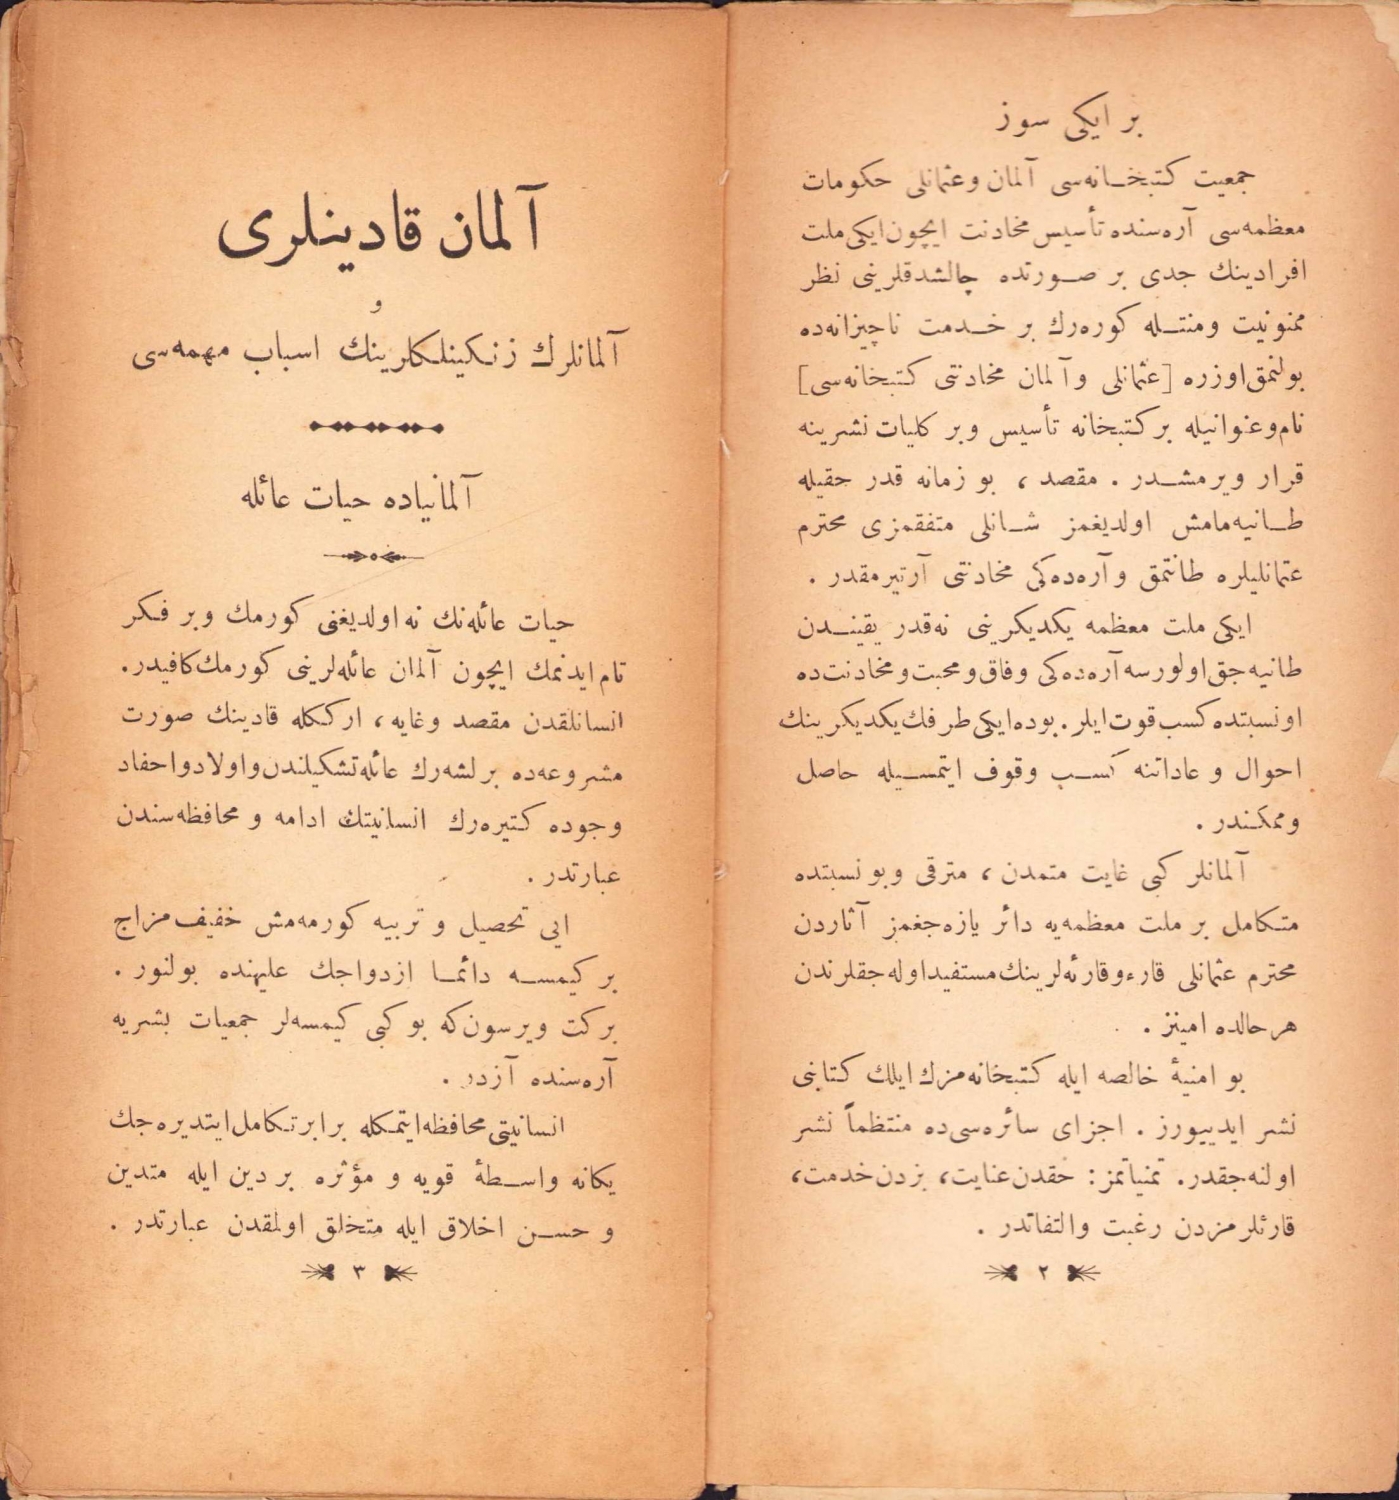 بر ایكی سوز
جمعیت كتبخـانه‌سی آلمان وعثمانلی حكومات
معظمه‌سی آره‌سنده تأسیس مخادنت ایچون ایكی ملت
افرادینك جدی بر صـورتده چالشدقلرینی نظر
ممنونیت ومنتـله كوره‌رك بر خـدمت ناچیزانه‌ده
بولنمق اوزره [عثمانلی وآلمان مخادنتی كتبخانه‌سی]
نام وعنوانیله بر كتبخانه تأسیس وبر كلیات نشرینه
قرار ویرمشـدر . مقصد ، بو زمانه قدر حقیله
طـانیه‌مامش اولدیغمز شـانلی متفقمزی محترم
عثمانلیلره طانتمق وآره‌ده‌كی مخادنتی آرتیرمقدر .
ایكی ملت معظمه یكدیكرینی نه‌قدر یقینـدن
طانیه‌جق اولورسه آره‌ده‌كی وفاق ومحبت ومخادنت‌ده
اونسبتده كسب قوت ایلر . بوده ایكی طرفك یكدیكرینك
احوال و عاداتنه كسـب وقوف ایتمسـیله حاصل
وممكندر .
آلمانلر كبی غایت متمدن ، مترقی وبو نسبتده
متكامل بر ملت معظمه‌یه دائر یازه‌جغمز آثاردن
محترم عثمانلی قارء وقارئه‌لرینك مستفید اوله‌جقلرندن
هر حالده امینز .
بو امنیهٔ خالصه ایله كتبخانه‌مزك ایلك كتابنی
نشر ایدییورز . اجزای سائره‌سی‌ده منتظماً نشر
اولنه‌جقدر. تمنیاتمز: حقدن عنایت، بزدن خدمت،
قارئلرمزدن رغبت والتفاتدر .
٢
آلمان قادینلری
و
آلمانلرك زنكینلكلرینك اسباب مهمه‌سی
آلمانیاده حیات عائله
حیات عائله‌نك نه اولدیغنی كورمك وبر فكر
تام ایدنمك ایچون آلمان عائله‌لرینی كورمك كافیدر.
انسانلقدن مقصد وغایه، اركككه قادینك صورت
مشروعه‌ده برلشه‌رك عائله تشكیلندن واولاد واحفاد
وجوده كتیره‌رك انسانیتك ادامه و محافظه‌سندن
عبارتدر .
ایی تحصیل و تربیه كورمه‌مش خفیف مزاج
بر كیمسـه دائمـا ازدواجك علیهنده بولنور .
بركت ویرسون كه بو كبی كیمسه‌لر جمعیات بشریه
آره‌سنده آزدر .
انسانیتی محافظه ایتمكله برابر تكامل ایتدیره‌جك
یكانه واسـطهٔ قویه و مؤثره بر دین ایله متدین
و حسـن اخلاق ایله متخلق اولمقدن عبارتدر .
٣